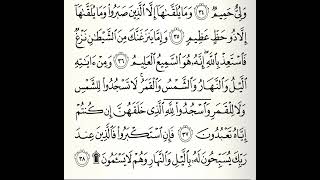 وَلِيٌّ حَمِيمٌ ٣٤ وَمَا يُلَقَّىٰهَا إِلَّا ٱلَّذِينَ صَبَرُوا۟ وَمَا يُلَقَّىٰهَا
إِلَّا ذُو حَظٍّ عَظِيمٍ ٣٥ وَإِمَّا يَنزَغَنَّكَ مِنَ ٱلشَّيْطَٰنِ نَزْغٌ
فَٱسْتَعِذْ بِٱللَّهِ ۖ إِنَّهُۥ هُوَ ٱلسَّمِيعُ ٱلْعَلِيمُ ٣٦ وَمِنْ ءَايَٰتِهِ
ٱلَّيْلُ وَٱلنَّهَارُ وَٱلشَّمْسُ وَٱلْقَمَرُ ۚ لَا تَسْجُدُوا۟ لِلشَّمْسِ
وَلَا لِلْقَمَرِ وَٱسْجُدُوا۟ لِلَّهِ ٱلَّذِى خَلَقَهُنَّ إِن كُنتُمْ
إِيَّاهُ تَعْبُدُونَ ٣٧ فَإِنِ ٱسْتَكْبَرُوا۟ فَٱلَّذِينَ عِندَ
رَبِّكَ يُسَبِّحُونَ لَهُۥ بِٱلَّيْلِ وَٱلنَّهَارِ وَهُمْ لَا يَسْـَٔمُونَ ۩ ٣٨